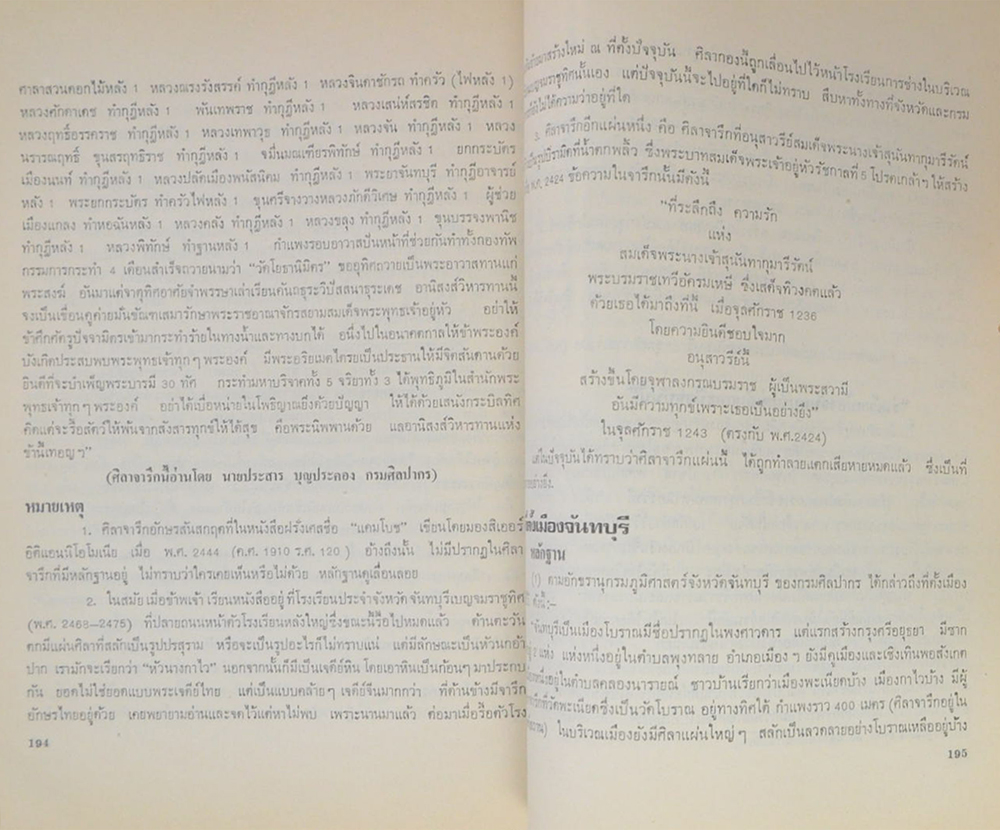 ศาลาสวนดอกไม้หลัง 1 หลวงณรงรังสรรค์ ทำกุฎีหลัง 1 หลวงจินดาชักรถ ทำครัว (ไฟหลัง 1)
หลวงศักดาเดช ทำกุฎีหลัง 1 พันเทพราช ทำกุฎีหลัง 1 หลวงเสน่ห์สรชิต ทำกุฎีหลัง 1
หลวงฤทธิ์อรรคราช ทำกุฎีหลัง 1 หลวงเทพาวุธ ทำกุฎีหลัง 1 หลวงจัน ทำกุฎีหลัง 1 หลวง
นรารณฤทธิ์ ขุนสรฤทธิราช ทำกุฎีหลัง 1 จมื่นมณเฑียรพิทักษ์ ทำกุฎีหลัง 1 ยกกระบัตร
เมืองนนท์ ทำกุฎีหลัง 1 หลวงปลัดเมืองพนัสนิคม ทำกุฎีหลัง 1 พระยาจันทบุรี ทำกุฎีอาจารย์
หลัง 1 พระยกกระบัตร ทำครัวไฟหลัง 1 ขุนศรีจางวางหลวงภักดีวิเศษ ทำกุฎีหลัง 1 ผู้ช่วย
เมืองแกลง ทำหอฉันหลัง 1 หลวงคลัง ทำกุฎีหลัง 1 หลวงขลุง ทำกุฎีหลัง 1 ขุนบรรจงพานิช
ทำกุฎีหลัง 1 หลวงพิทักษ์ ทำฐานหลัง 1 กำแพงรอบอาวาสปันหน้าที่ช่วยกันทำทั้งกองทัพ
กรรมการกระทำ 4 เดือนสำเร็จถวายนามว่า "วัดโยธานิมิตร" ขออุทิศถวายเป็นพระอาวาสทานแก่
พระสงฆ์ อันมาแต่จาตุทิศอาศัยจำพรรษาเล่าเรียนคันถธุระวิปัสสนาธุระเดช อานิสงส์วิหารทานนี้
จงเป็นเขื่อนคูค่ายมั่นขัณฑเสมารักษาพระราชอาณาจักรสยามสมเด็จพระพุทธเจ้าอยู่หัว อย่าให้
ข้าศึกศัตรูปัจจามิตรเข้ามากระทำร้ายในทางน้ำและทางบกได้ อนึ่งไปในอนาคตกาลให้ข้าพระองค์
บังเกิดประสบพบพระพุทธเจ้าทุก ๆ พระองค์ มีพระอริยเมตไตรยเป็นประธานให้มีจิตสันดานด้วย
ยินดีที่จะบำเพ็ญพระบารมี 30 ทัศ กระทำมหาบริจาคทั้ง 5 จริยาทั้ง 3 ได้พุทธิภูมิในสำนักพระ
พุทธเจ้าทุก ๆ พระองค์ อย่าได้เบื่อหน่ายในโพธิญาณยิ่งด้วยปัญญา ให้ได้ด้วยเสนังกระบิลทิศ
คิดแต่จะรื้อสัตว์ให้พ้นจากสังสารทุกข์ให้ได้สุข คือพระนิพพานด้วย แลอานิสงส์วิหารทานแห่ง
ข้านี้เทอญ ฯ"
(ศิลาจารึกนี้อ่านโดย นายประสาร บุญประคอง กรมศิลปากร)
หมายเหตุ
1. ศิลาจารึกอักษรสันสกฤตที่ในหนังสือฝรั่งเศสชื่อ "แคมโบช" เขียนโดยมองสิเออร์
อิติแอนนิโอโมเนีย เมื่อ พ.ศ. 2444 (ค.ศ. 1910 ร.ศ. 120) อ้างถึงนั้น ไม่มีปรากฏในศิลา
จารึกที่มีหลักฐานอยู่ ไม่ทราบว่าใครเคยเห็นหรือไม่ด้วย หลักฐานดูเลื่อนลอย
2. ในสมัยเมื่อข้าพเจ้า เรียนหนังสืออยู่ที่โรงเรียนประจำจังหวัดจันทบุรีเบญจมราชูทิศ
(พ.ศ. 2468–2475) ที่ปลายถนนหน้าตัวโรงเรียนหลังใหญ่ซึ่งขณะนี้รื้อไปหมดแล้ว ด้านตะวัน
ตกมีแผ่นศิลาที่สลักเป็นรูปปรสุราม หรือจะเป็นรูปอะไรก็ไม่ทราบแน่ แต่มีลักษณะเป็นหัวนกอ้า
ปาก เรามักจะเรียกว่า "หัวนางกาไว" นอกจากนั้นก็มีเป็นเจดีย์หิน โดยเอาหินเป็นก้อนๆ มาประกบ
กัน ยอดไม่ใช่ยอดแบบพระเจดีย์ไทย แต่เป็นแบบคล้ายๆ เจดีย์จีนมากกว่า ที่ด้านข้างมีจารึก
อักษรไทยอยู่ด้วย เคยพยายามอ่านและจดไว้แต่หาไม่พบ เพราะนานมาแล้ว ต่อมาเมื่อรื้อตัวโรง
194
มาสร้างใหม่ ณ ที่ตั้งปัจจุบัน ศิลากองนี้ถูกเลื่อนไปไว้หน้าโรงเรียนการช่างในบริเวณ
เบญจมราชูทิศนั้นเอง แต่ปัจจุบันนี้จะไปอยู่ที่ใดก็ไม่ทราบ สืบหาทั้งทางที่จังหวัดและกรม
ก็ยังไม่ได้ความว่าอยู่ที่ใด
3. ศิลาจารึกอีกแผ่นหนึ่ง คือ ศิลาจารึกที่อนุสาวรีย์สมเด็จพระนางเจ้าสุนันทากุมารีรัตน์
เป็นรูปปิรามิดที่น้ำตกพลิ้ว ซึ่งพระบาทสมเด็จพระเจ้าอยู่หัวรัชกาลที่ 5 โปรดเกล้าฯ ให้สร้าง
พ.ศ. 2424 ข้อความในจารึกนั้นมีดังนี้
"ที่ระลึกถึง ความรัก
แห่ง
สมเด็จพระนางเจ้าสุนันทากุมารีรัตน์
พระบรมราชเทวีอัครมเหษี ซึ่งเสด็จทิวงคตแล้ว
ด้วยเธอได้มาถึงที่นี้ เมื่อจุลศักราช 1236
โดยความยินดีชอบใจมาก
อนุสาวรีย์นี้
สร้างขึ้นโดยจุฬาลงกรณบรมราช ผู้เป็นพระสวามี
อันมีความทุกข์เพราะเธอเป็นอย่างยิ่ง"
ในจุลศักราช 1243 (ตรงกับ พ.ศ.2424)
แต่ในปัจจุบันได้ทราบว่าศิลาจารึกแผ่นนี้ ได้ถูกทำลายแตกเสียหายหมดแล้ว ซึ่งเป็นที่
อย่างยิ่ง.
ตั้งเมืองจันทบุรี
หลักฐาน
(1) ตามอักขรานุกรมภูมิศาสตร์จังหวัดจันทบุรี ของกรมศิลปากร ได้กล่าวถึงที่ตั้งเมือง
ดังนี้:–
"จันทบุรีเป็นเมืองโบราณมีชื่อปรากฏในพงศาวดาร แต่แรกสร้างกรุงศรีอยุธยา มีซาก
แห่ง แห่งหนึ่งอยู่ในตำบลพุงทลาย อำเภอเมือง ฯ ยังมีคูเมืองและเชิงเทินพอสังเกต
หนึ่งอยู่ในตำบลคลองนารายณ์ ชาวบ้านเรียกว่าเมืองพะเนียดบ้าง เมืองกาไวบ้าง มีผู้
จารึกที่วัดพะเนียดซึ่งเป็นวัดโบราณ อยู่ทางทิศใต้ กำแพงราว 400 เมตร (ศิลาจารึกอยู่ใน
) ในบริเวณเมืองยังมีศิลาแผ่นใหญ่ ๆ สลักเป็นลวดลายอย่างโบราณเหลืออยู่บ้าง
195